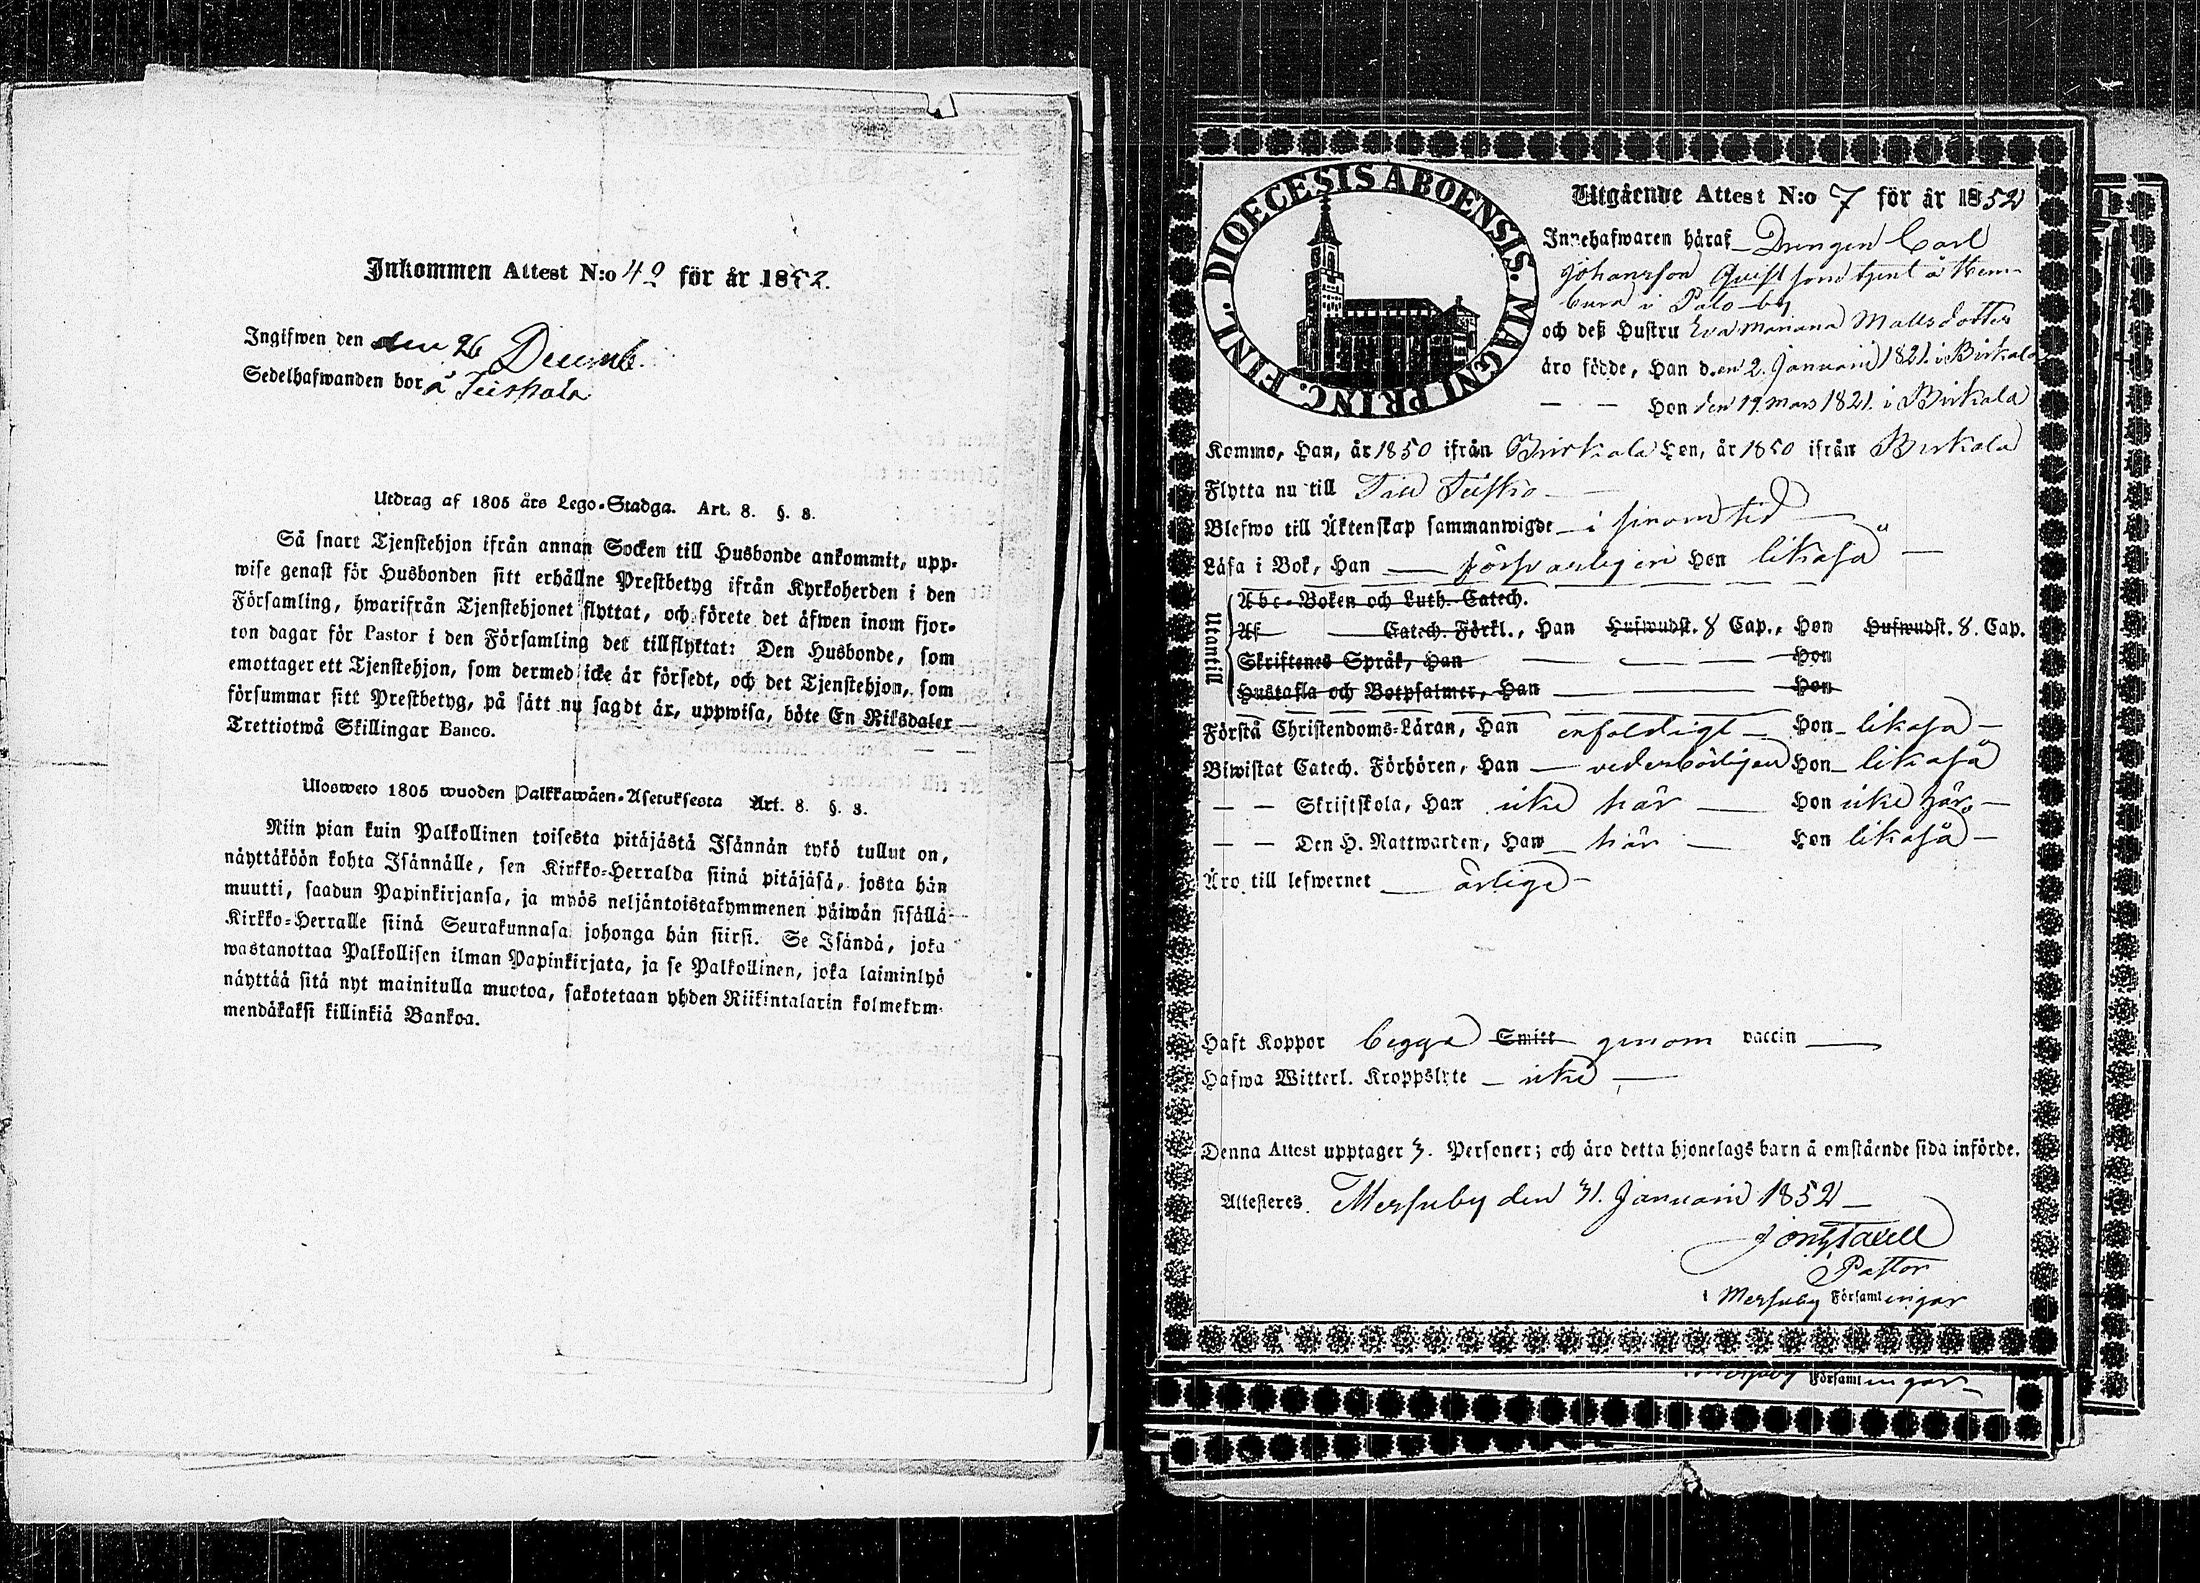 Inkommen Attest N:o 42 för år 1852.
Ingifwen den den 26 Decemb.
Sedelhafwanden bor å Teiskola
Utdrag af 1805 års Lego-Stadga. Art. 8. §. 8.
Så snart Tjenstehjon ifrån annan Socken till Husbonde ankommit, upp-
wise genast för Husbonden sitt erhållne Prestbetyg ifrån Kyrkoherden i den
Församling, hwarifrån Tjenstehjonet flyttat, och förete det äfwen inom fjor-
ton dagar för Pastor i den Församling det tillflyktat: Den Husbonde, som
emottager ett Tjenstehjon, som dermed icke är försedt, och det Tjenstehjon, som
försummar sitt Prestbetyg, på sätt nu sagdt är, uppwisa, böte En Riksdaler
Trettiotwå Skillingar Banco.
Ulosweto 1805 wuoden Palkkawäen-Asetuksesta Art. 8. §. 8.
Niin pian kuin Palkollinen toisesta pitäjästä Isännän tykö tullut on,
näyttäköön kohta Isännälle, sen Kirkko-Herralda siinä pitäjäsä, josta hän
muutti, saadun Papinkirjansa, ja myös neljäntoistakymmenen päiwän sisällä
Kirkko-Herralle siinä Seurakunnasa johonga hän siirsi. Se Isändä, joka
wastanottaa Palkollisen ilman Papinkirjata, ja se Palkollinen, joka laiminlyö
näyttää sitä nyt mainitulla muotoa, sakotetaan yhden Riikintalarin kolmekym-
mendäkaksi killinkiä Bankoa.
DIOECESIS ABOENSIS. MAGNI PRINC. FINL.
Utgående Attest N:o 7 för år 1852
Innehafwaren häraf Drengen Carl
Johansson Quist som tjent å
i Palo by
och deß Hustru Eva Mariana Mattsdotter
äro födde, Han den 2. Januarii 1821. i Birkala
— — Hon den 19. Mars 1821. i Birkala
Kommo, Han, år 1850 ifrån Birkala Hon, år 1850 ifrån Birkala
Flytta nu till
Blefwo till Äktenskap sammanwigde i sinom tid
Läsa i Bok, Han försvarligen Hon likaså
Utantill
Abc-Boken och Luth. Catech.
Af Catech. Förkl., Han Hufwudst. 8 Cap., Hon Hufwudst. 8. Cap.
Skriftenes Språk, Han Hon
Hustafla och Botpsalmer, Han Hon
Förstå Christendoms-Läran, Han enfaldigt Hon likaså
Biwistat Catech. Förhören, Han vederbörligen Hon likaså
— — Skriftskola, Han icke här Hon icke här
— — Den H. Nattwarden, Han här Hon likaså
Äro till lefwernet ärlige
Haft Koppor begge Smitt genom vaccin
Hafwa Witterl. Kroppslyte icke
Denna Attest upptager 3. Personer; och äro detta hjonelags barn å omstående sida införde.
Attesteras. Messuby den 31. Januarii 1852
Pastor
i Messuby Församlingar
Messuby Församlingar